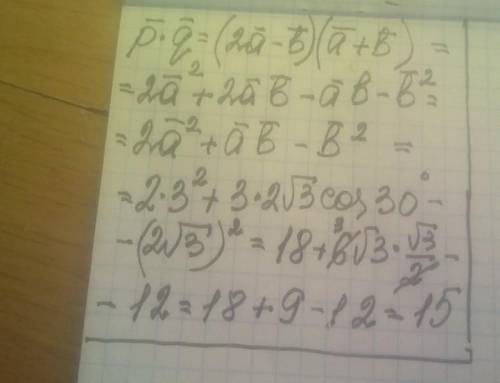 p̄·q̄=(2ā-b̄)(ā+b̄) =
=2ā²+2āb̄-āb-b̄²=
=2ā²+āb̄-b̄² =
=2·3²+3·2√3cos30°-
-(2√3)²=18+6̸³√3·√3/2̸-
-12=18+9-12=15